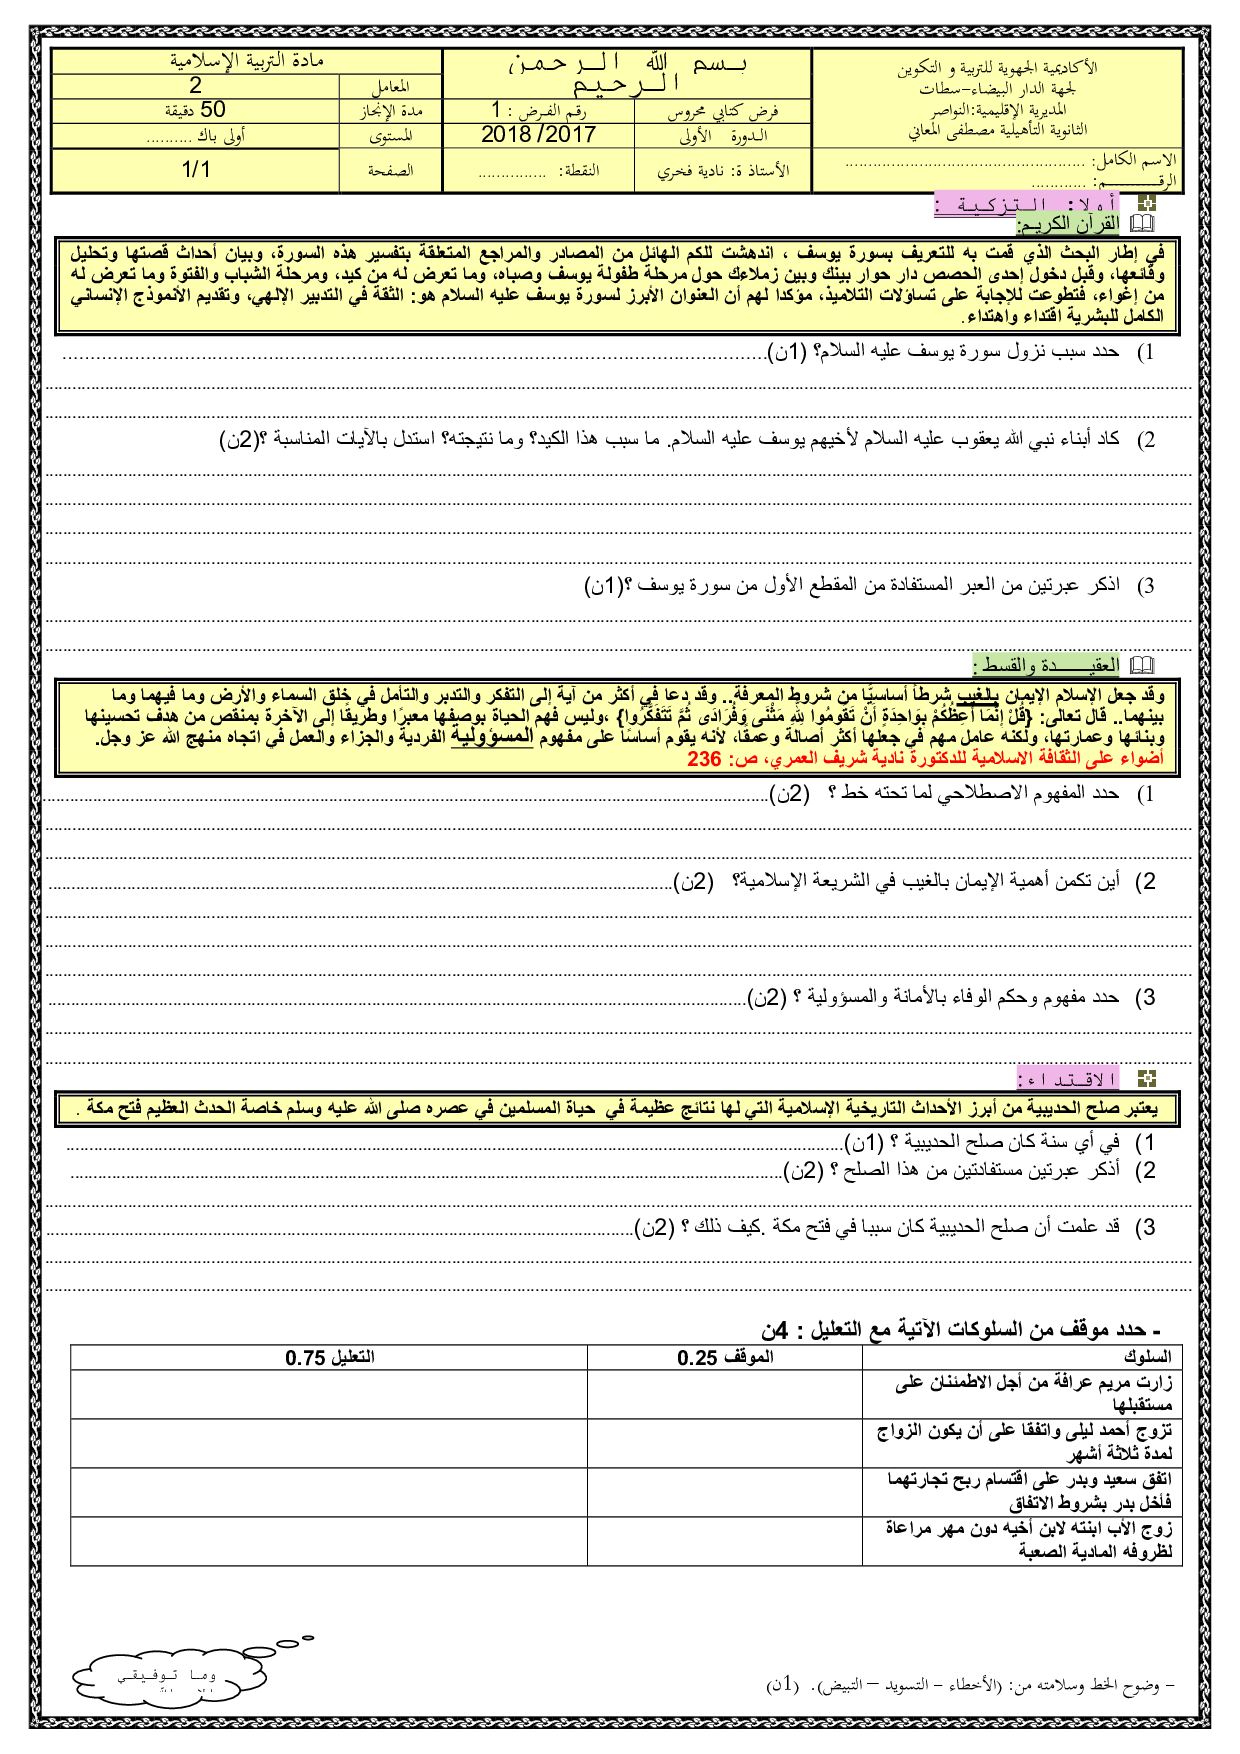 الأكاديمية الجهوية للتربية و التكوين
لجهة الدار البيضاء-سطات
المديرية الإقليمية:النواصر
الثانوية التأهيلية مصطفى المعاني
الاسم الكامل: ....................................................
الرقـــــــــــم: ............
بـسـم الله الـرحـمـن
الـرحـيـم
فرض كتابي محروس
رقم الفرض : 1
الـدورة الأولى
2017/ 2018
الأستاذ ة: نادية فخري
النقطة: ...............
مادة التربية الإسلامية
المعامل
2
مدة الإنجاز
50 دقيقة
المستوى
أولى باك ..........
الصفحة
1/1
أولا: التزكية :
القرآن الكريم:
في إطار البحث الذي قمت به للتعريف بسورة يوسف ، اندهشت للكم الهائل من المصادر والمراجع المتعلقة بتفسير هذه السورة، وبيان أحداث قصتها وتحليل
وقائعها، وقبل دخول إحدى الحصص دار حوار بينك وبين زملاءك حول مرحلة طفولة يوسف وصباه، وما تعرض له من كيد، ومرحلة الشباب والفتوة وما تعرض له
من إغواء، فتطوعت للإجابة على تساؤلات التلاميذ، مؤكدا لهم أن العنوان الأبرز لسورة يوسف عليه السلام هو: الثقة في التدبير الإلهي، وتقديم الأنموذج الإنساني
الكامل للبشرية اقتداء واهتداء.
1) حدد سبب نزول سورة يوسف عليه السلام؟ (1ن)
2) كاد أبناء نبي الله يعقوب عليه السلام لأخيهم يوسف عليه السلام. ما سبب هذا الكيد؟ وما نتيجته؟ استدل بالآيات المناسبة ؟(2ن)
3) اذكر عبرتين من العبر المستفادة من المقطع الأول من سورة يوسف ؟(1ن)
العقيـــــدة والقسط :
وقد جعل الإسلام الإيمان بالغيب شرطاً أساسيًّا من شروط المعرفة.. وقد دعا في أكثر من آية إلى التفكر والتدبر والتأمل في خلق السماء والأرض وما فيهما وما
بينهما.. قال تعالى: {قُلْ إِنَّمَا أَعِظُكُمْ بِوَاحِدَةٍ أَنْ تَقُومُوا لِلَّهِ مَثْنَى وَفُرَادَى ثُمَّ تَتَفَكَّرُوا} ،وليس فهم الحياة بوصفها معبرًا وطريقًا إلى الآخرة بمنقص من هدف تحسينها
وبنائها وعمارتها، ولكنه عامل مهم في جعلها أكثر أصالة وعمقًا، لأنه يقوم أساسًا على مفهوم المسؤولية الفردية والجزاء والعمل في اتجاه منهج الله عز وجل.
أضواء على الثقافة الاسلامية للدكتورة نادية شريف العمري، ص: 236
1) حدد المفهوم الاصطلاحي لما تحته خط ؟ (2ن)
2) أين تكمن أهمية الإيمان بالغيب في الشريعة الإسلامية؟ (2ن)
3) حدد مفهوم وحكم الوفاء بالأمانة والمسؤولية ؟ (2ن)
الاقتداء:
يعتبر صلح الحديبية من أبرز الأحداث التاريخية الإسلامية التي لها نتائج عظيمة في حياة المسلمين في عصره صلى الله عليه وسلم خاصة الحدث العظيم فتح مكة .
1) في أي سنة كان صلح الحديبية ؟ (1ن)
2) أذكر عبرتين مستفادتين من هذا الصلح ؟ (2ن)
3) قد علمت أن صلح الحديبية كان سببا في فتح مكة .كيف ذلك ؟ (2ن)
- حدد موقف من السلوكات الآتية مع التعليل : 4ن
السلوك
الموقف 0.25
التعليل 0.75
زارت مريم عرافة من أجل الاطمئنان على
مستقبلها
تزوج أحمد ليلى واتفقا على أن يكون الزواج
لمدة ثلاثة أشهر
اتفق سعيد وبدر على اقتسام ربح تجارتهما
فأخل بدر بشروط الاتفاق
زوج الأب ابنته لابن أخيه دون مهر مراعاة
لظروفه المادية الصعبة
- وضوح الخط وسلامته من: (الأخطاء - التسويد – التبييض). (1ن)
وما توفيقي